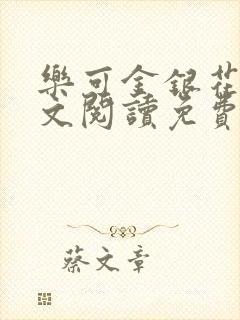 樂可金銀花
文閱讀免費
蔡文章